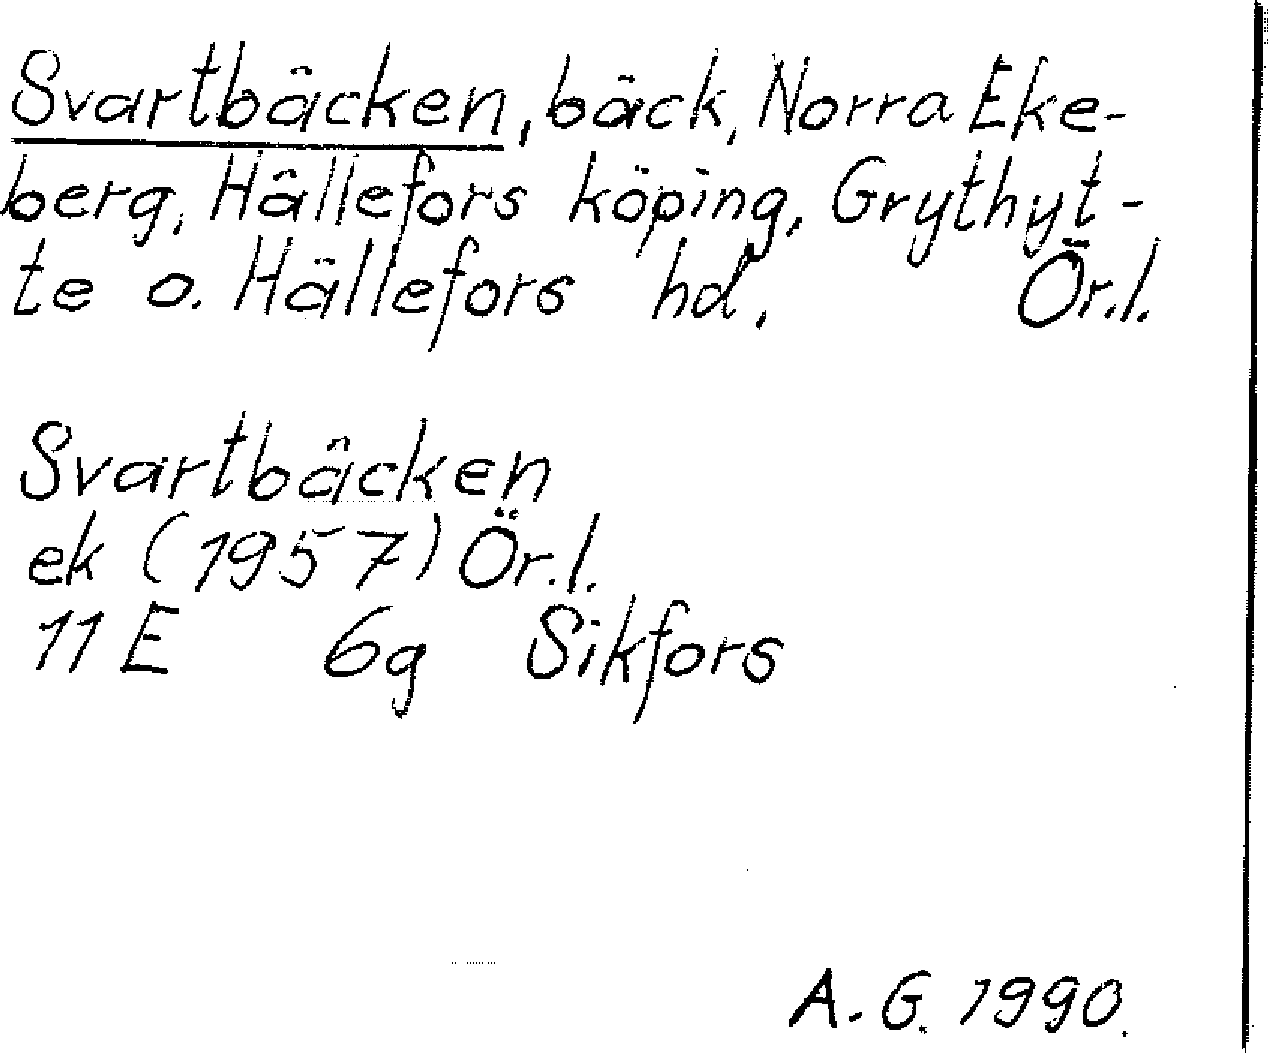 Svartbäcken, bäck, Norra Eke-
berg, Hällefors köping, Grythyt-
te o. Hällefors hd. Ör.l.
Svartbäcken
ek (1957) Ör.l.
11 E 6g Sikfors
A.G. 1990.